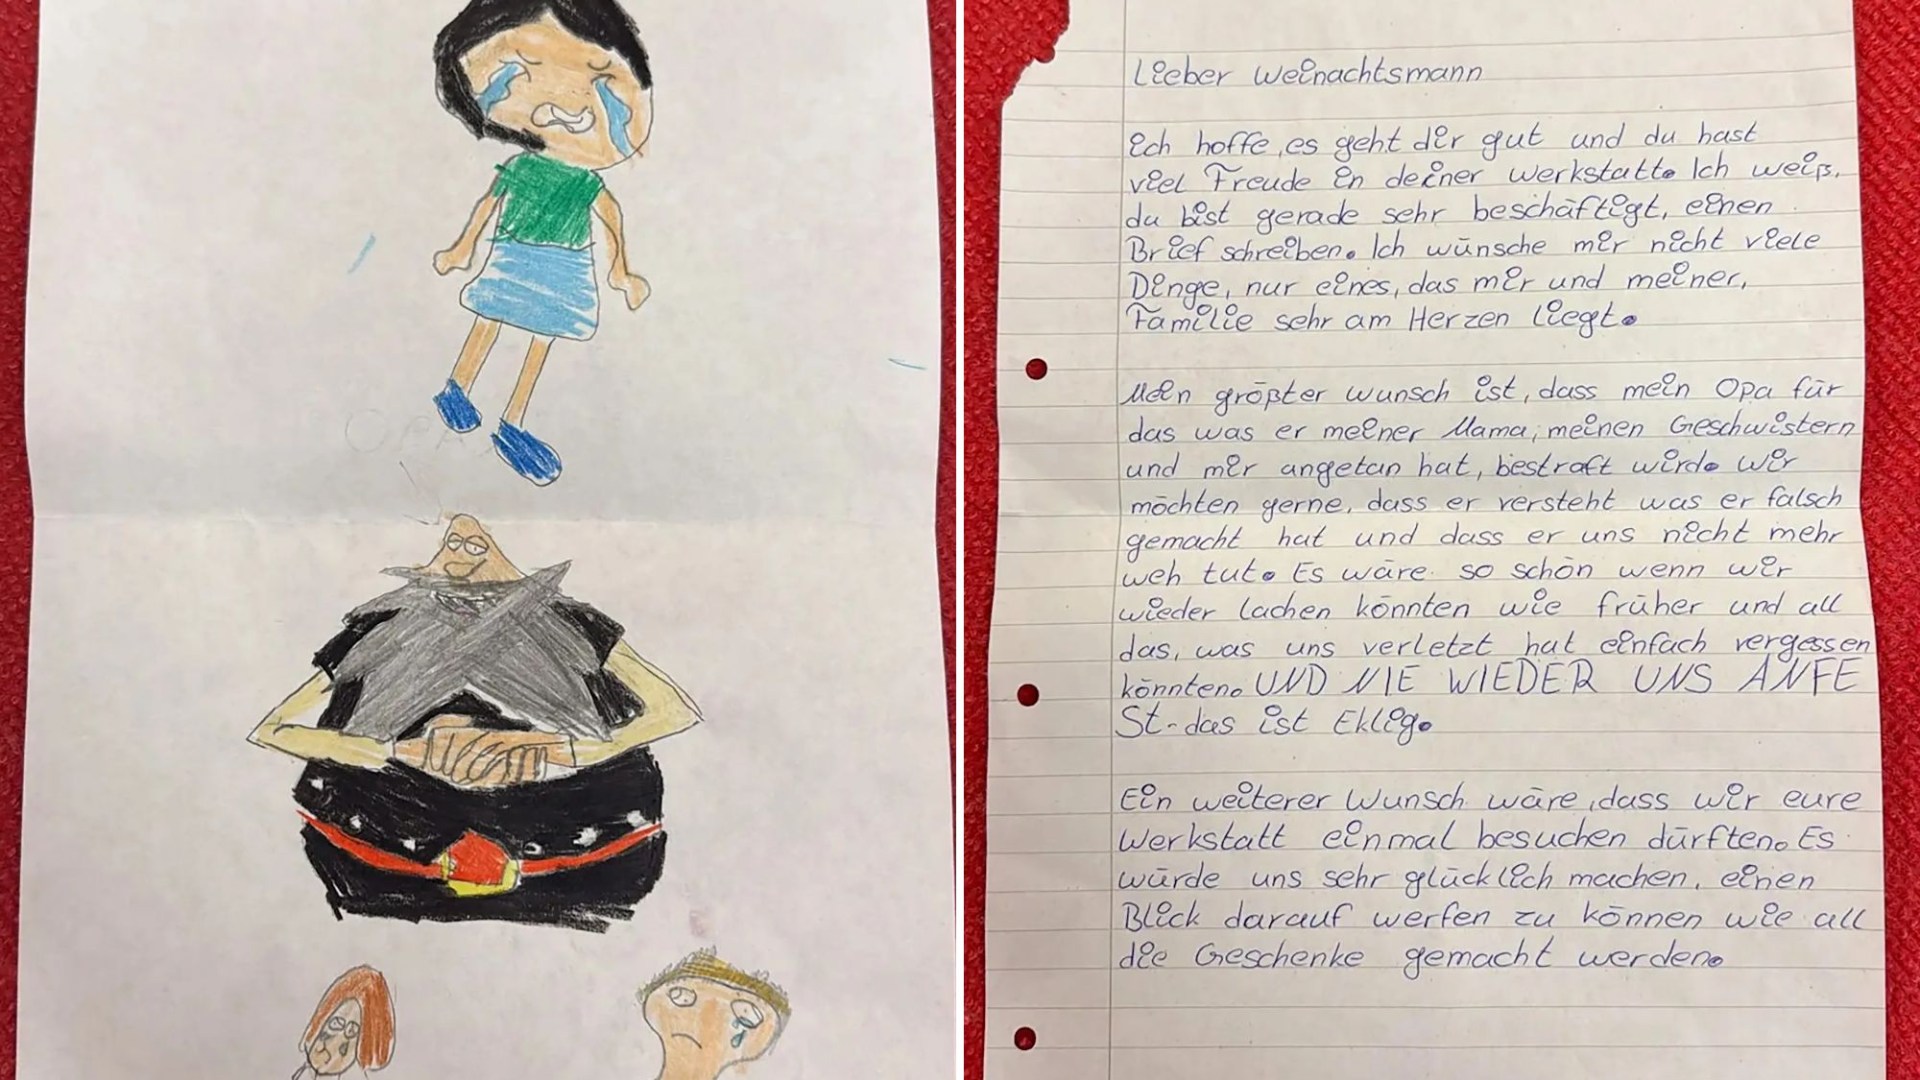 OPA
Lieber Weinachtsmann
Ich hoffe, es geht dir gut und du hast
viel Freude in deiner Werkstatt. Ich weiß,
du bist gerade sehr beschäftigt, einen
Brief schreiben. Ich wünsche mir nicht viele
Dinge, nur eines, das mir und meiner,
Familie sehr am Herzen liegt.
Mein größter Wunsch ist, dass mein Opa für
das was er meiner Mama, meinen Geschwistern
und mir angetan hat, bestraft wird. Wir
möchten gerne, dass er versteht was er falsch
gemacht hat und dass er uns nicht mehr
weh tut. Es wäre so schön wenn wir
wieder lachen könnten wie früher und all
das, was uns verletzt hat einfach vergessen
könnten. UND NIE WIEDER UNS ANFE
St-das ist Eklig.
Ein weiterer Wunsch wäre, dass wir eure
Werkstatt einmal besuchen dürften. Es
würde uns sehr glücklich machen, einen
Blick darauf werfen zu können wie all
die Geschenke gemacht werden.